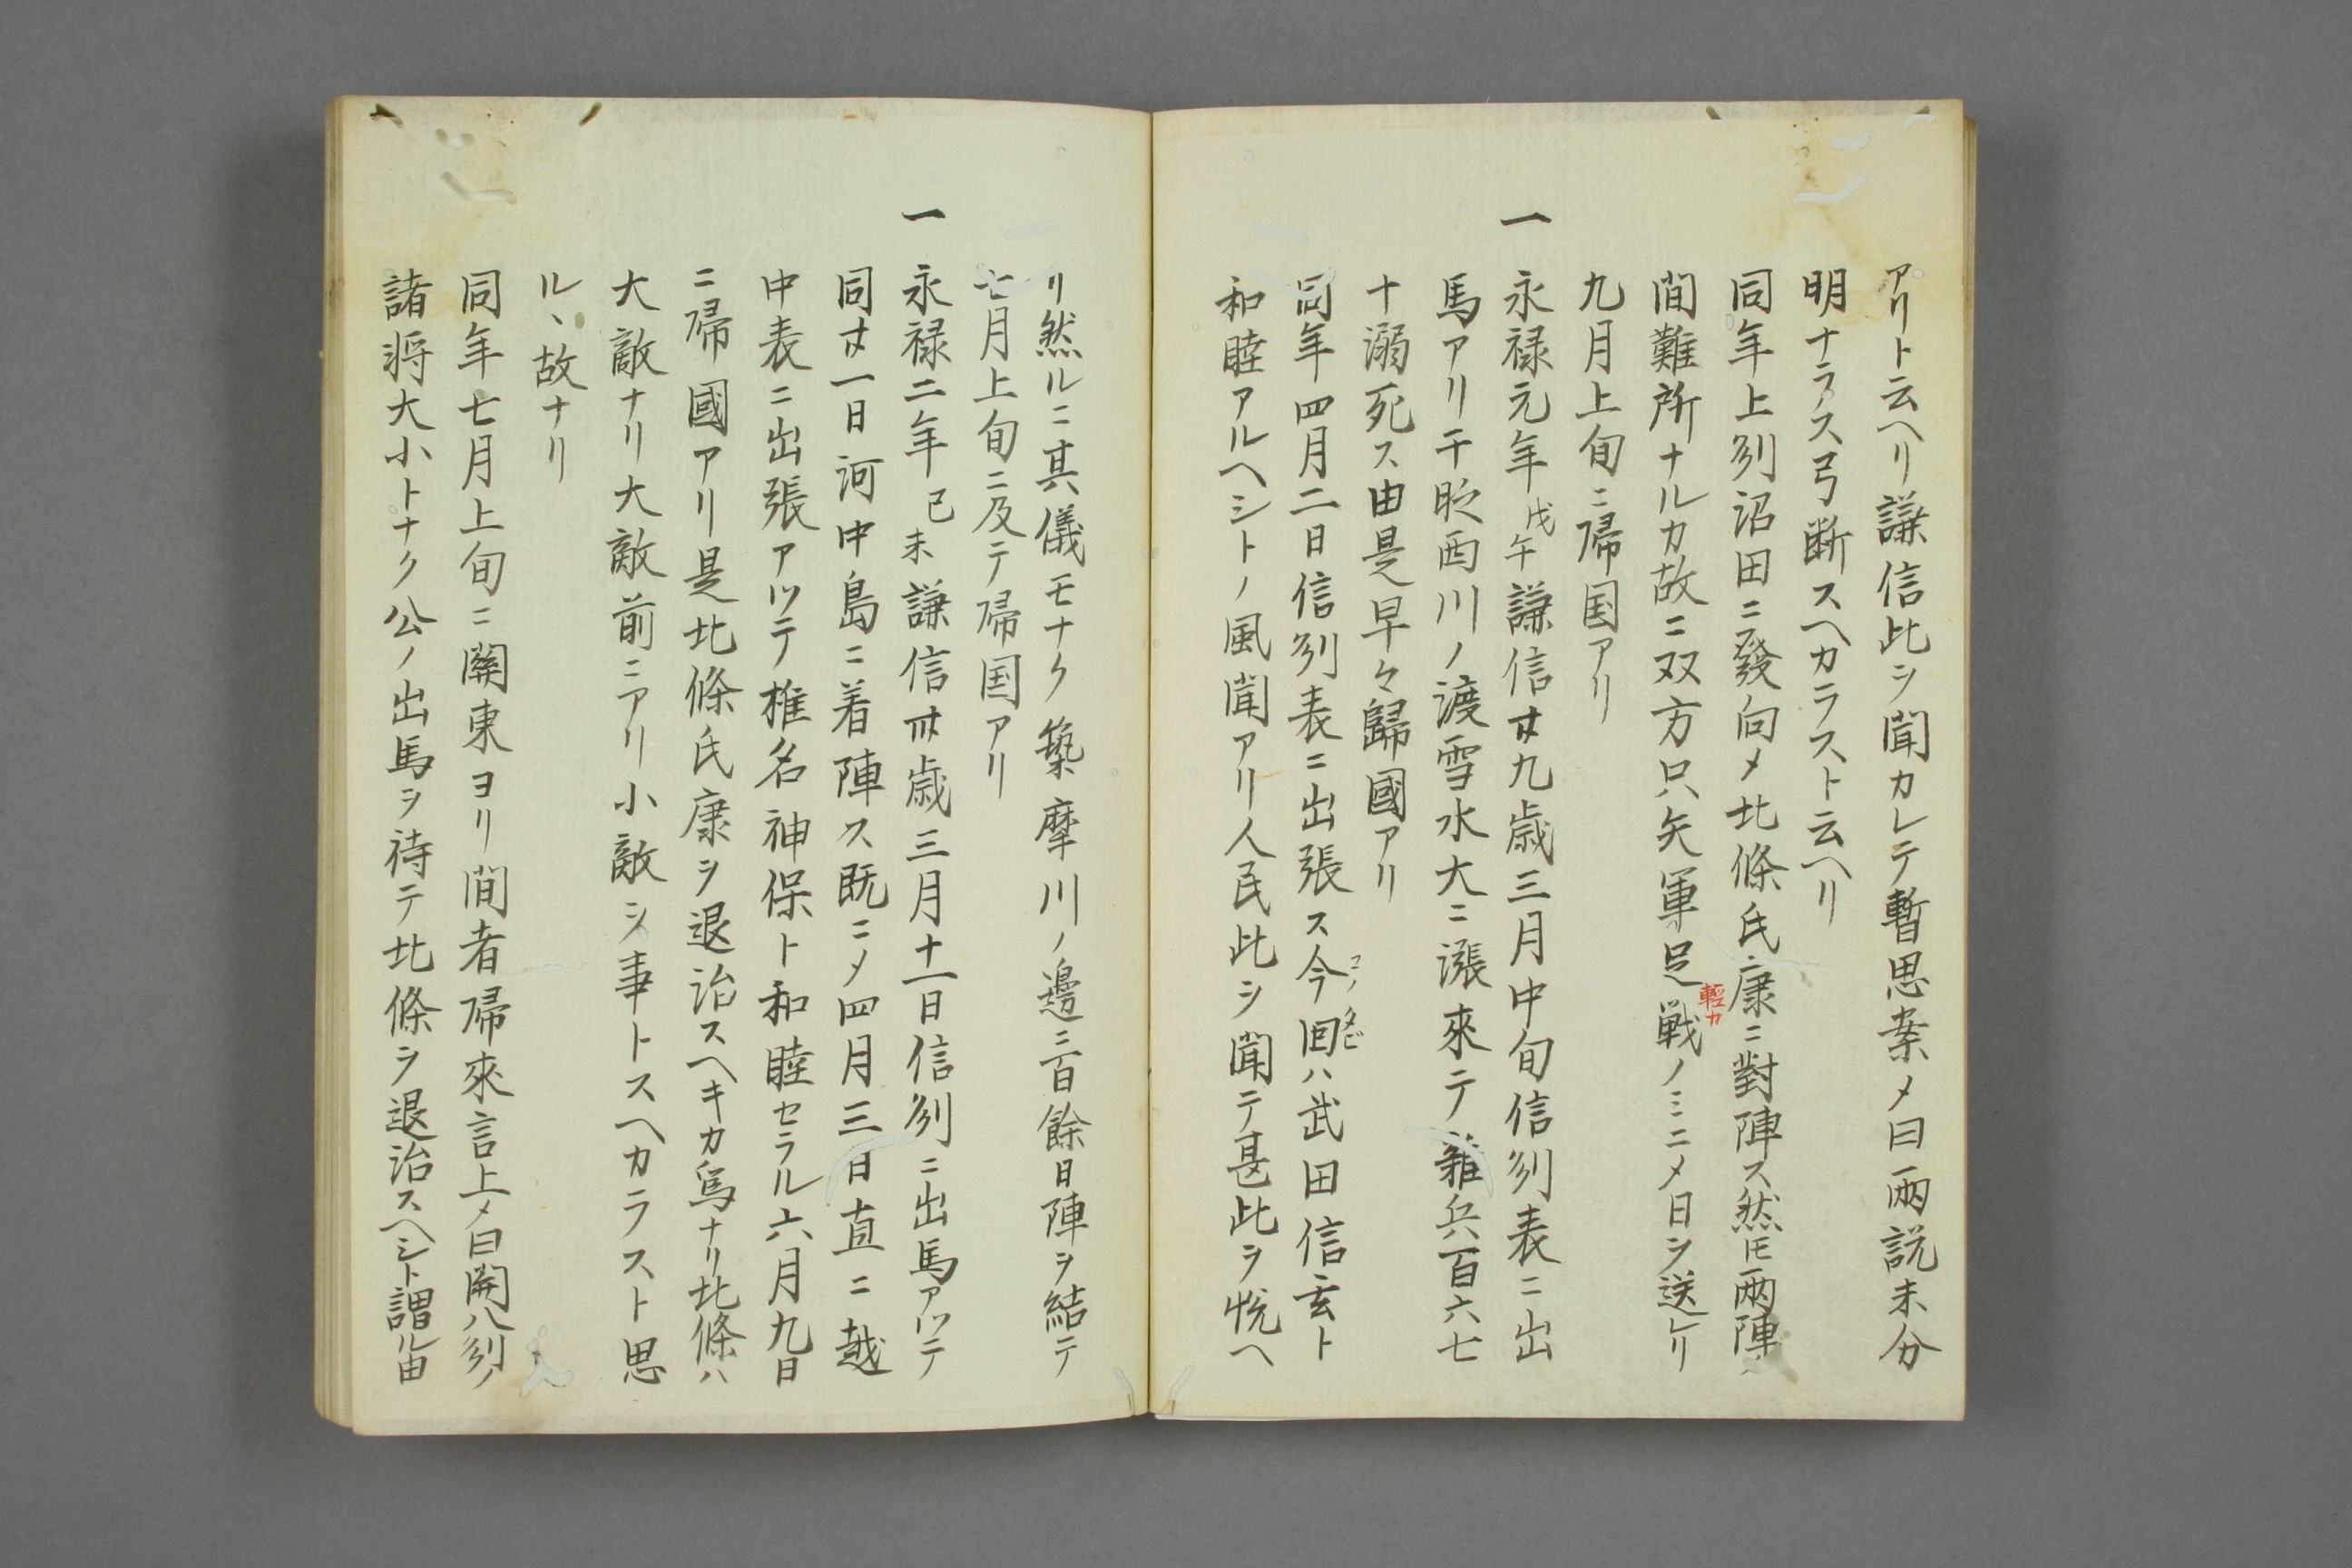 アリト云ヘリ謙信此ヲ聞カレテ暫思案メ曰兩説未分
明ナラス弓断スヘカラスト云ヘリ
同年上刕沼田ニ發向メ北條氏康ニ對陣ス然ㇳモ兩陣ノ
間難所ナルカ故ニ双方只矢軍足戦ノミニメ日ヲ送レリ
輕カ
九月上旬ニ帰国アリ
一 永禄元年戊午謙信廿九歳三月中旬信刕表ニ出
馬アリ千眨酉川ノ渡雪水大ニ漲來テ雜兵百六七
十溺死ス由是早々歸國アリ
同年四月二日信刕表ニ出張ス今回ハ武田信玄ト
コノタビ
和睦アルヘシトノ風聞アリ人民此ヲ聞テ甚此ヲ悦ヘ
リ然ルニ其儀モナク築摩川ノ邊ニ百餘日陣ヲ結テ
七月上旬ニ及テ帰国アリ
一 永禄二年己未謙信卅歳三月十一日信刕ニ出馬アツテ
同廿一日河中島ニ着陣ス既ニメ四月三日直ニ越
中表ニ出張アツテ椎名神保ト和睦セラル六月九日
ニ帰國アリ是北條氏康ヲ退治スヘキカ爲ナリ北條ハ
大敵ナリ大敵前ニアリ小敵ヲ事トスヘカラスト思
ルヽ故ナリ
同年七月上旬ニ關東ヨリ間者帰來言上メ曰関八刕ノ
諸将大小トナク公ノ出馬ヲ待テ北條ヲ退治スヘシト謂ル由